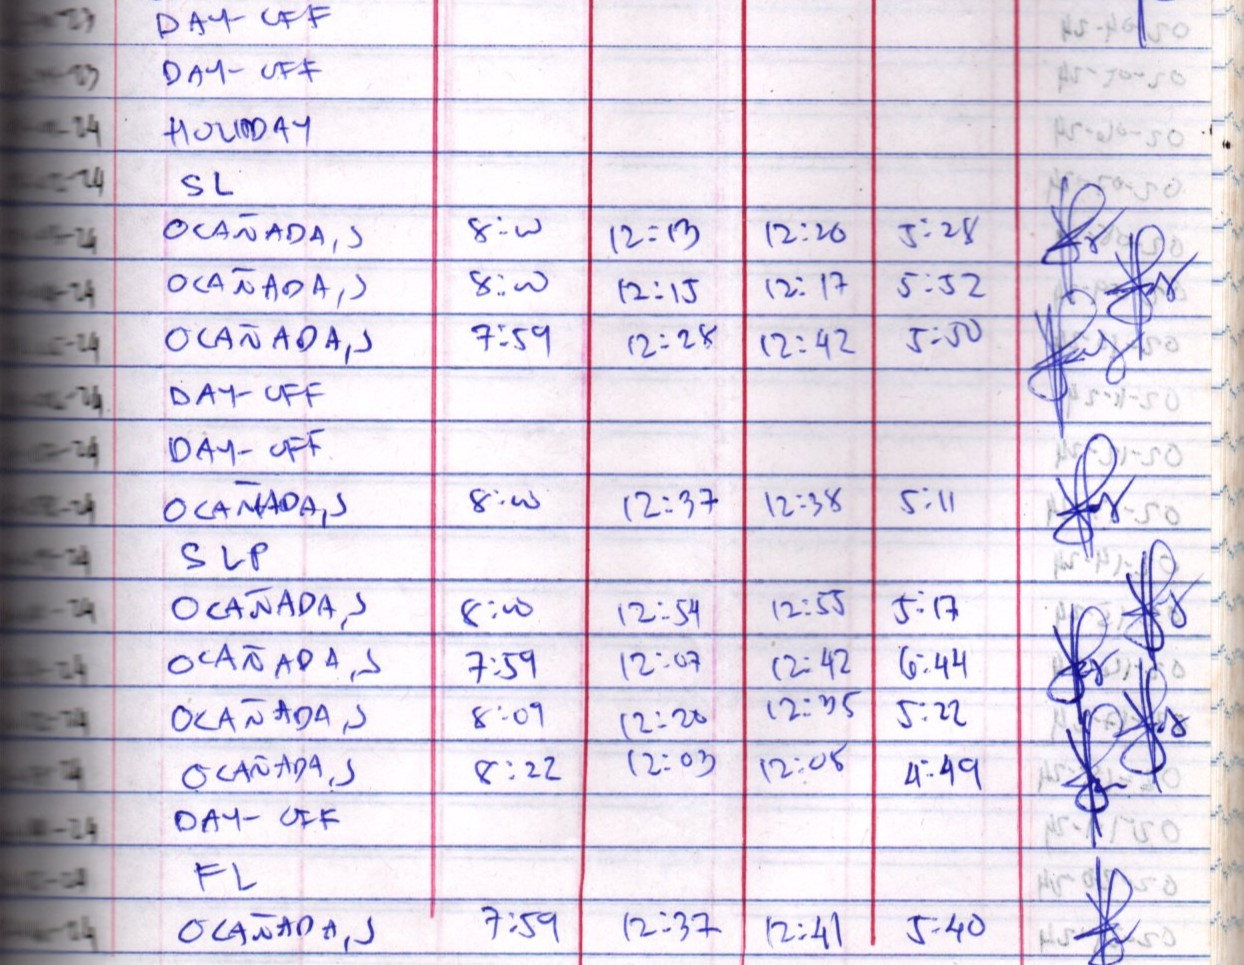 DAY-OFF
DAY-OFF
HOLIDAY
SL
OCAÑADA, J 8:00 12:13 12:20 5:28
OCAÑADA, J 8:00 12:15 12:17 5:52
OCAÑADA, J 7:59 12:28 12:42 5:50
DAY-OFF
DAY-OFF
OCAÑADA, J 8:00 12:37 12:38 5:11
SLP
OCAÑADA, J 8:00 12:54 12:55 5:17
OCAÑADA, J 7:59 12:07 12:42 6:44
OCAÑADA, J 8:09 12:20 12:35 5:22
OCAÑADA, J 8:22 12:03 12:08 4:49
DAY-OFF
FL
OCAÑADA, J 7:59 12:37 12:41 5:40